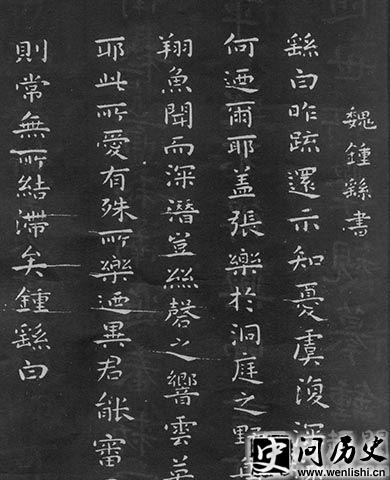 魏鍾繇書
繇白昨疏還示知憂虞復深
何迺爾耶蓋張樂於洞庭之野
翔魚聞而深潛豈絲磬之響雲英
耶此所愛有殊所樂迺異君能審
則常無所結滯矣鍾繇白
史问历史
www.wenlishi.cn